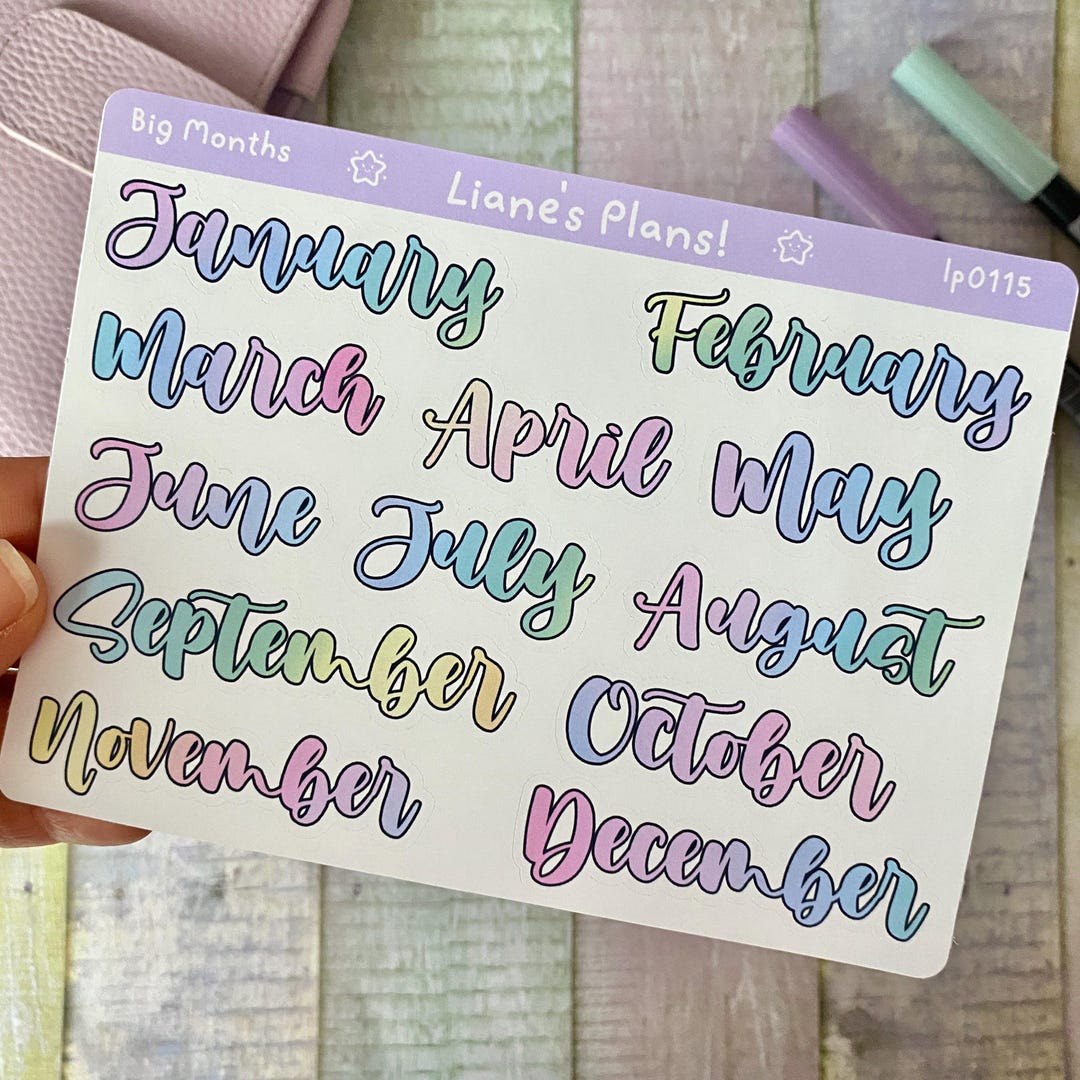 Big Months Liane's Plans! lp0115
January
February
March April May
June July August
September October
November December